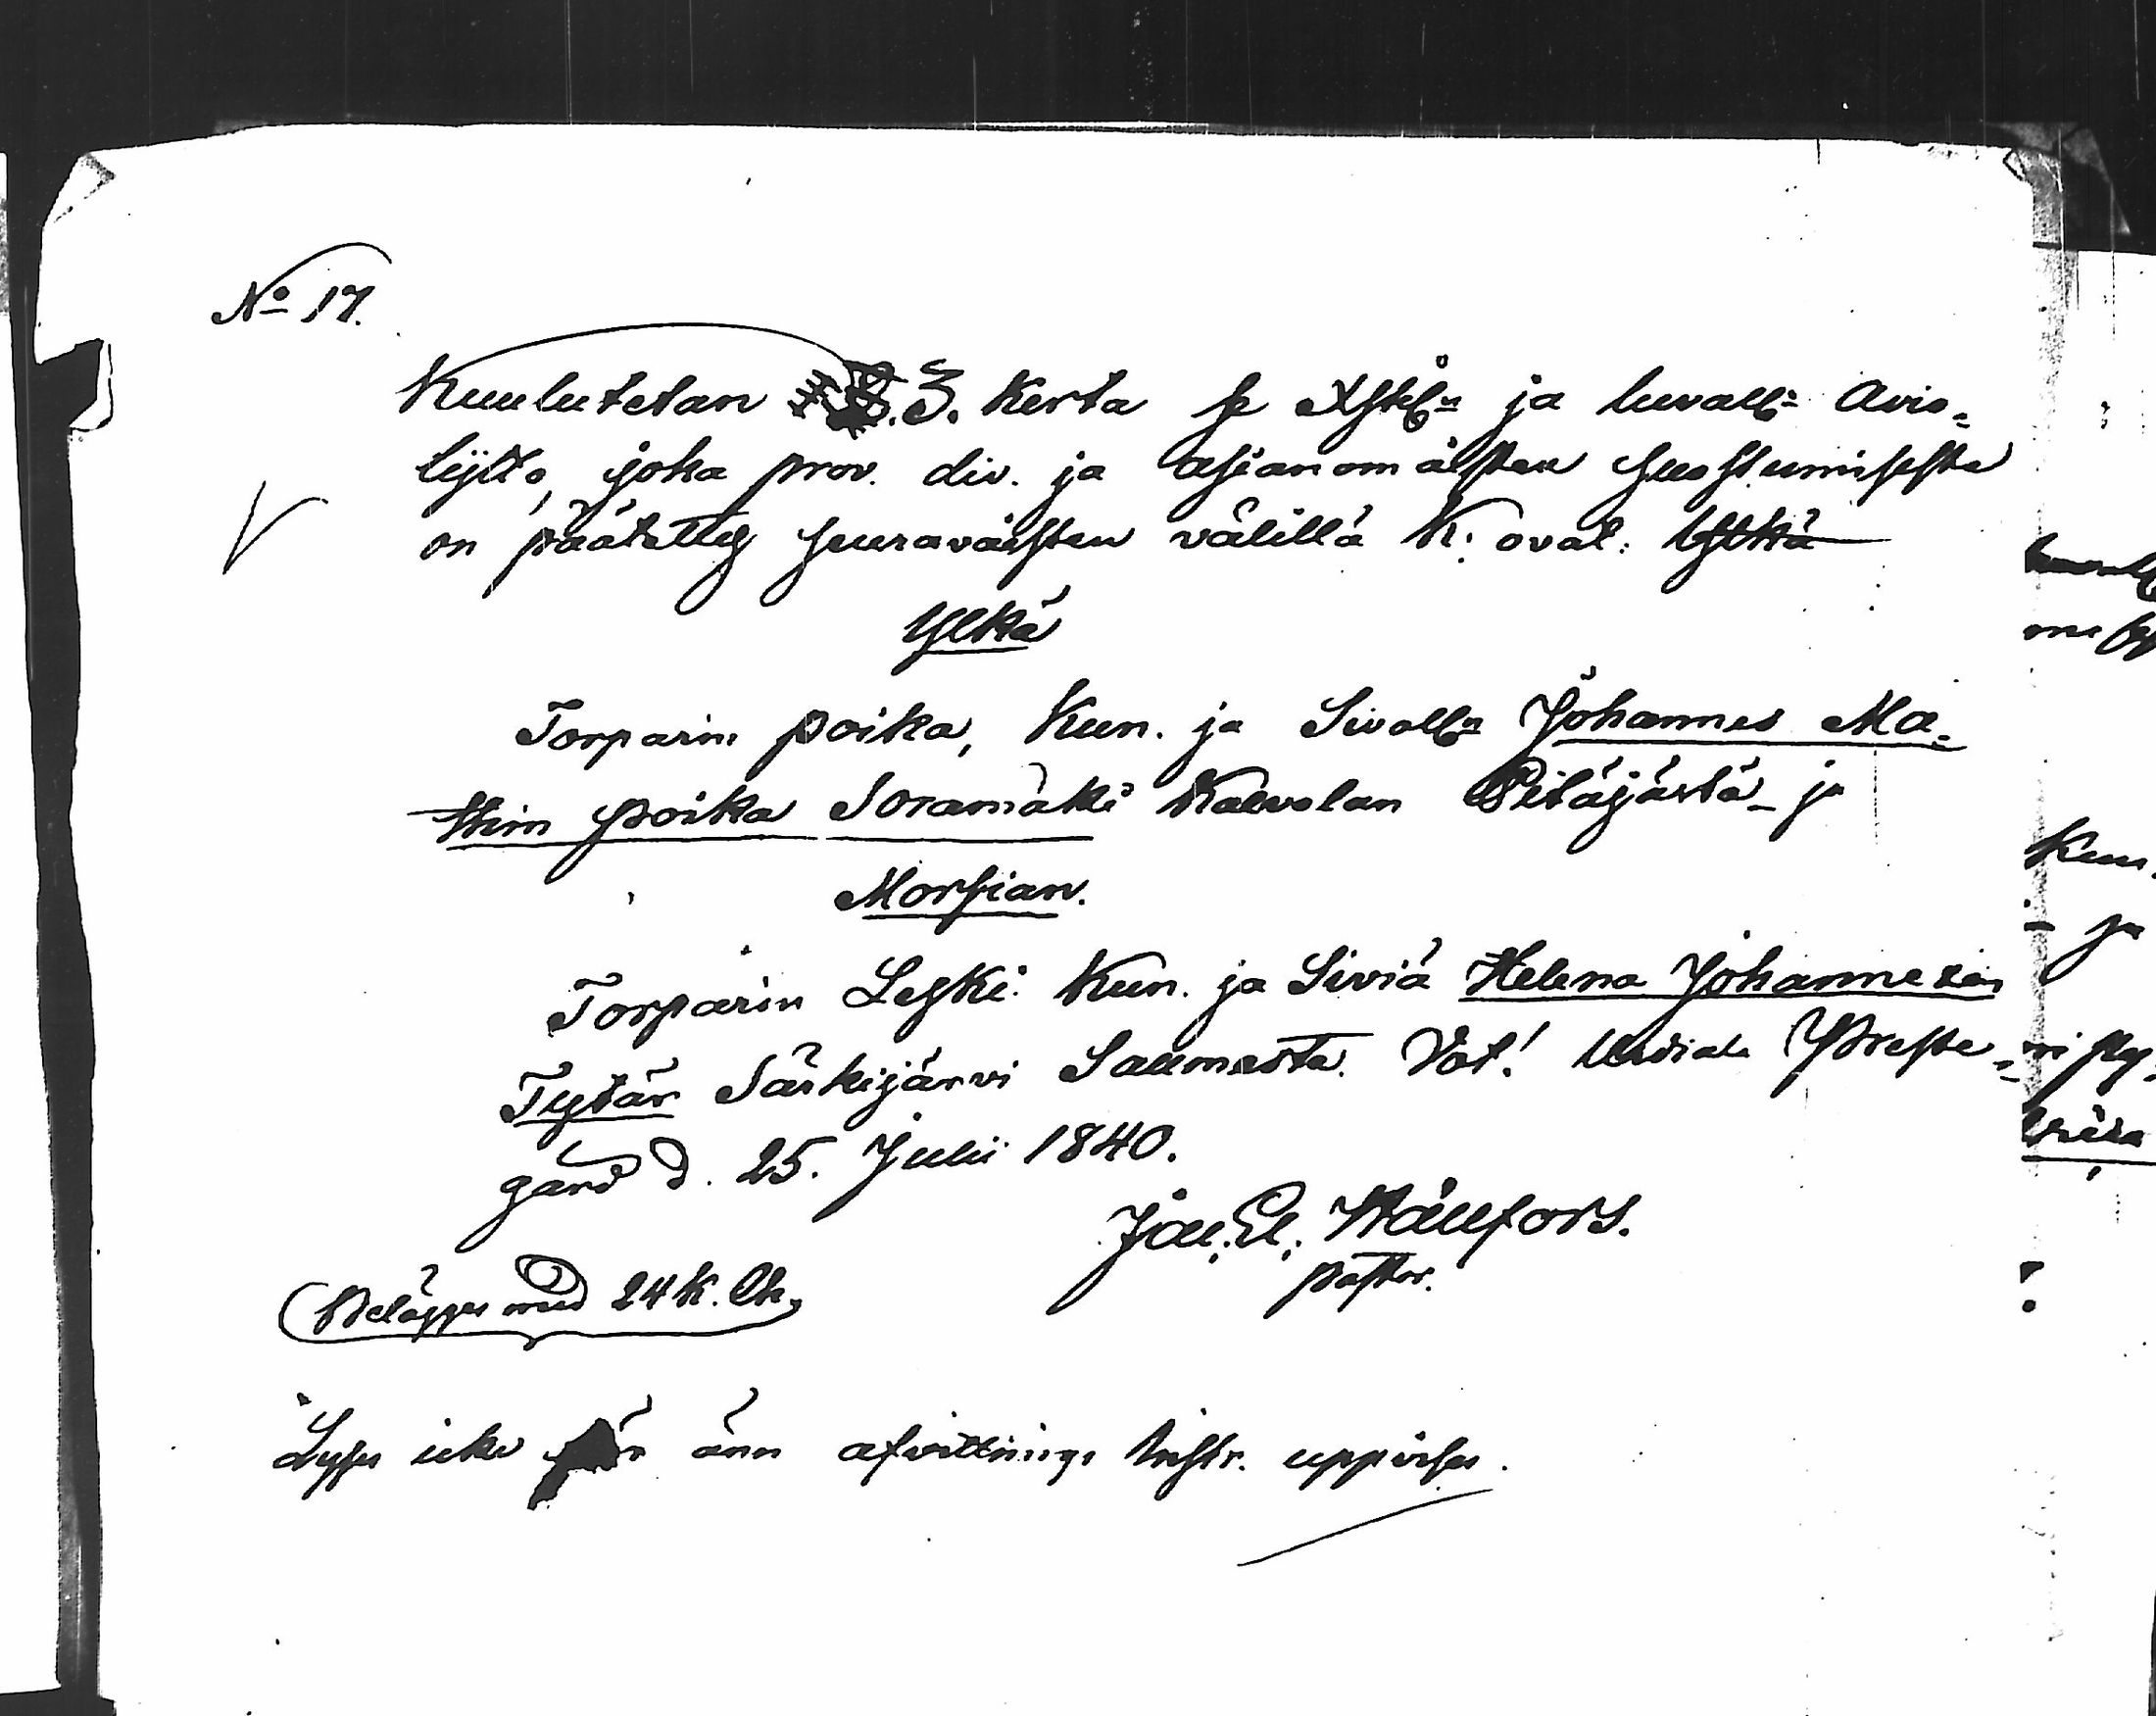 No 17.
Kuulutetan 3. Kerta se Xstl:n ja luvall: Avio=
lijtto, joka prov. div. ja asianomaisten suostumisesta
on päätetty seuravaisten välillä K: ovat:
Ylkä
Torparin poika, Kun. ja Sivoll:n Johannes Ma=
thin poika Soramäki Kalvolan Pitäjästä ja
Morsian.
Torparin Leski Kun. ja Siviä Helena Johanneksen
Tytär Särkijärvi Saumasta. Vot! Urdiala Preste=
gård d. 25. Julii 1840.
Joh. El. Wållfors.
pastor.
(Belägges med 24 K. Ch.)
Lyses icke förr änn afvittrings Instr. uppvises.